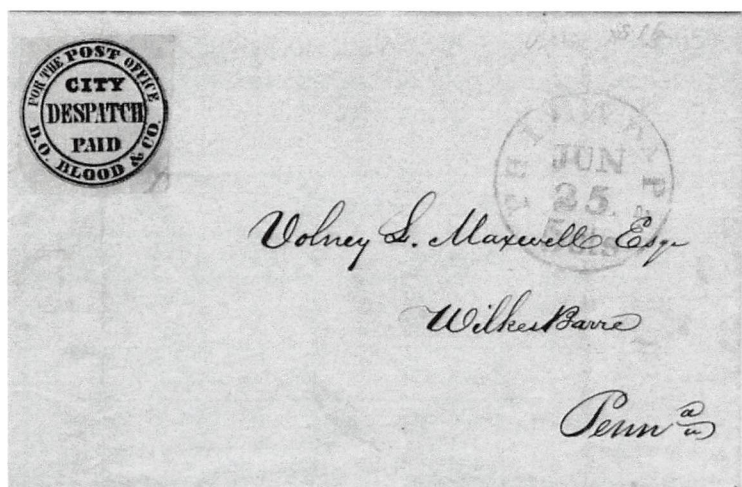 FOR THE POST OFFICE
CITY
DESPATCH
PAID
D.O. BLOOD & CO.
JUN
25
5cts
Volney L. Maxwell Esqr
WilkesBarre
Penna